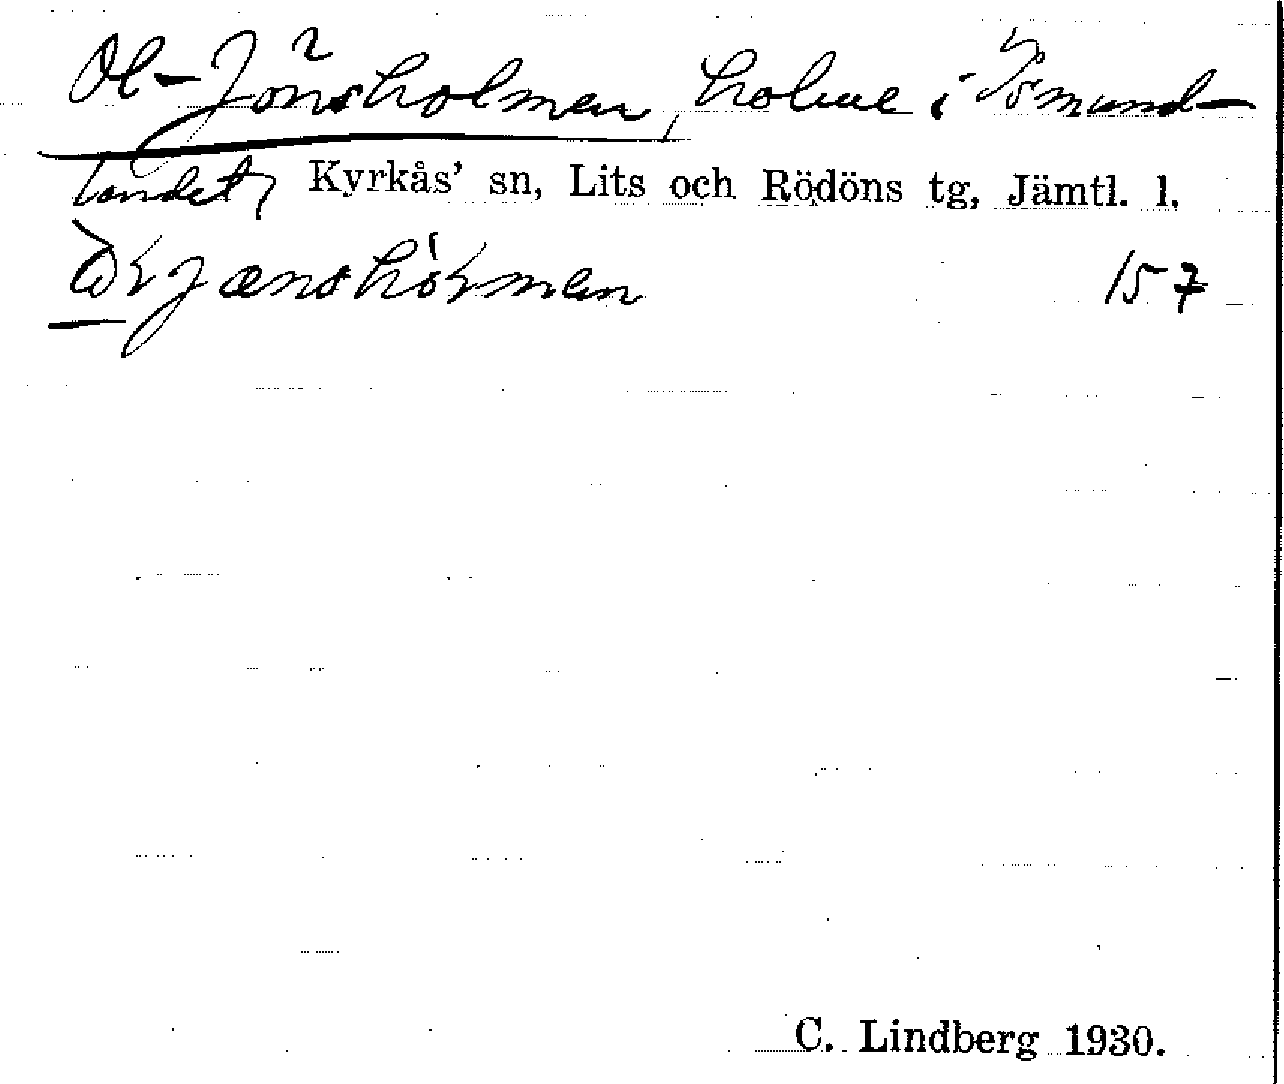 Ol-Jönsholmen, holme i Ismund-
landet, Kyrkås' sn, Lits och Rödöns tg, Jämtl. l.
157
C. Lindberg 1930.